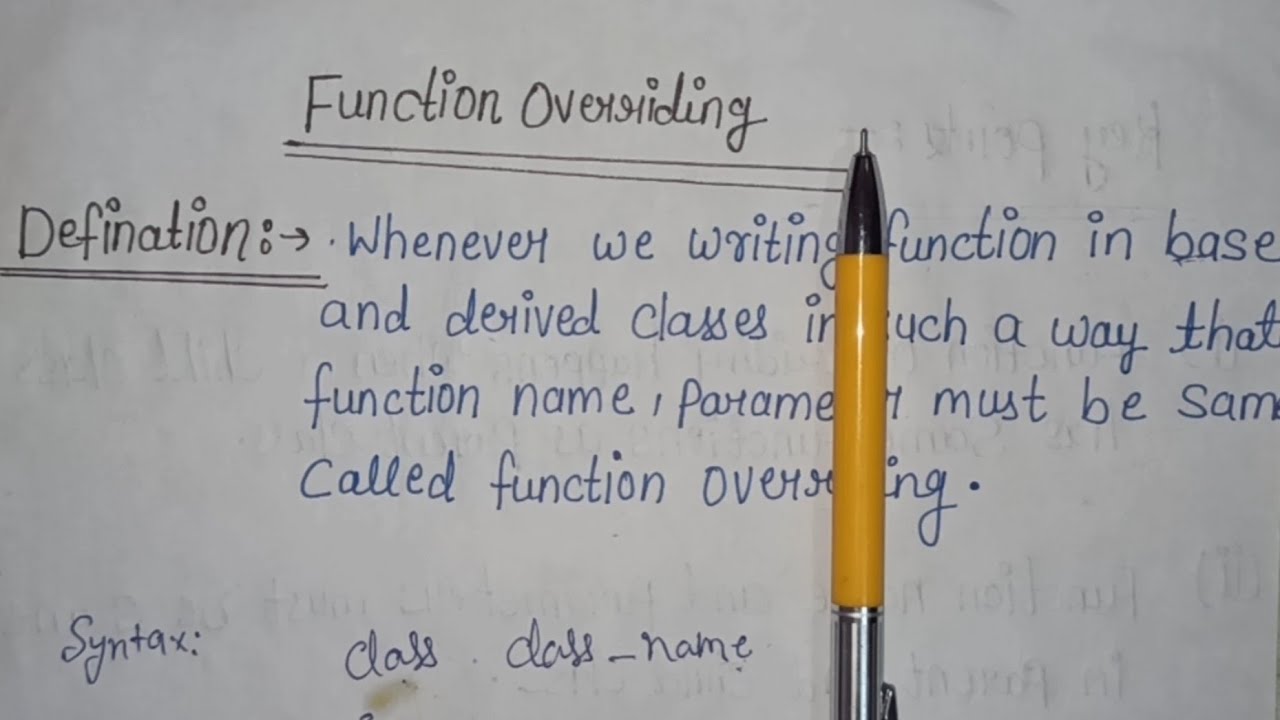 Function Overriding
Defination:→ . Whenever we writing function in base
and derived classes in such a way that
function name, Parameter must be sam
Called function overriding.
Syntax: class class_name